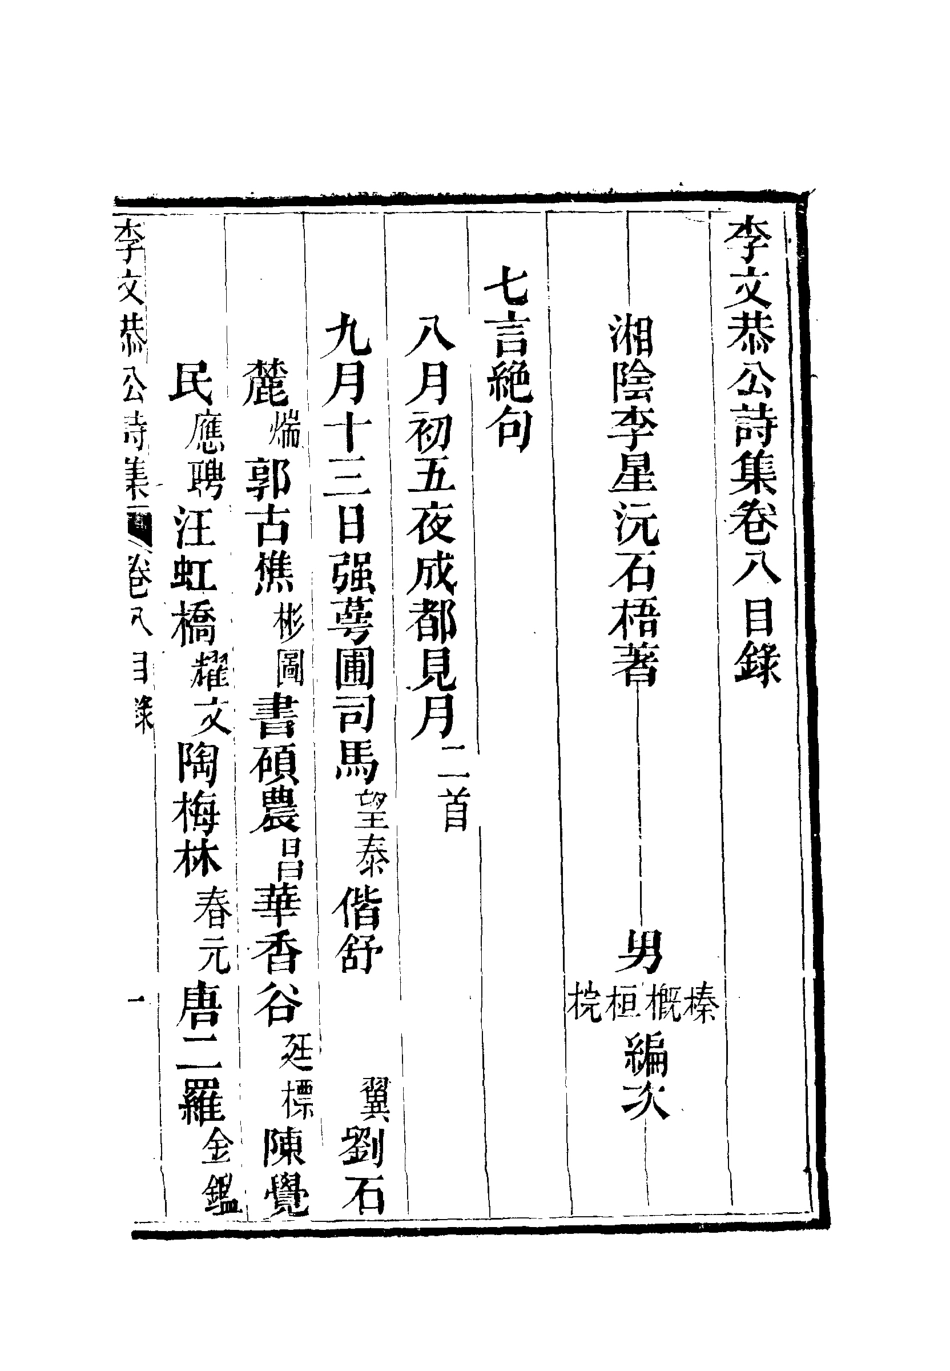 李文恭公詩集卷八目錄
湘陰李星沅石梧著 男榛概桓梡編次
七言絕句
八月初五夜成都見月二首
九月十三日强萼圃司馬望泰偕舒 翼劉石
麓煓郭古樵彬圖書碩農昌華香谷廷標陳覺
民應聘汪虹橋耀文陶梅林春元唐二羅金鑑
李文恭公詩集 卷八目錄 一